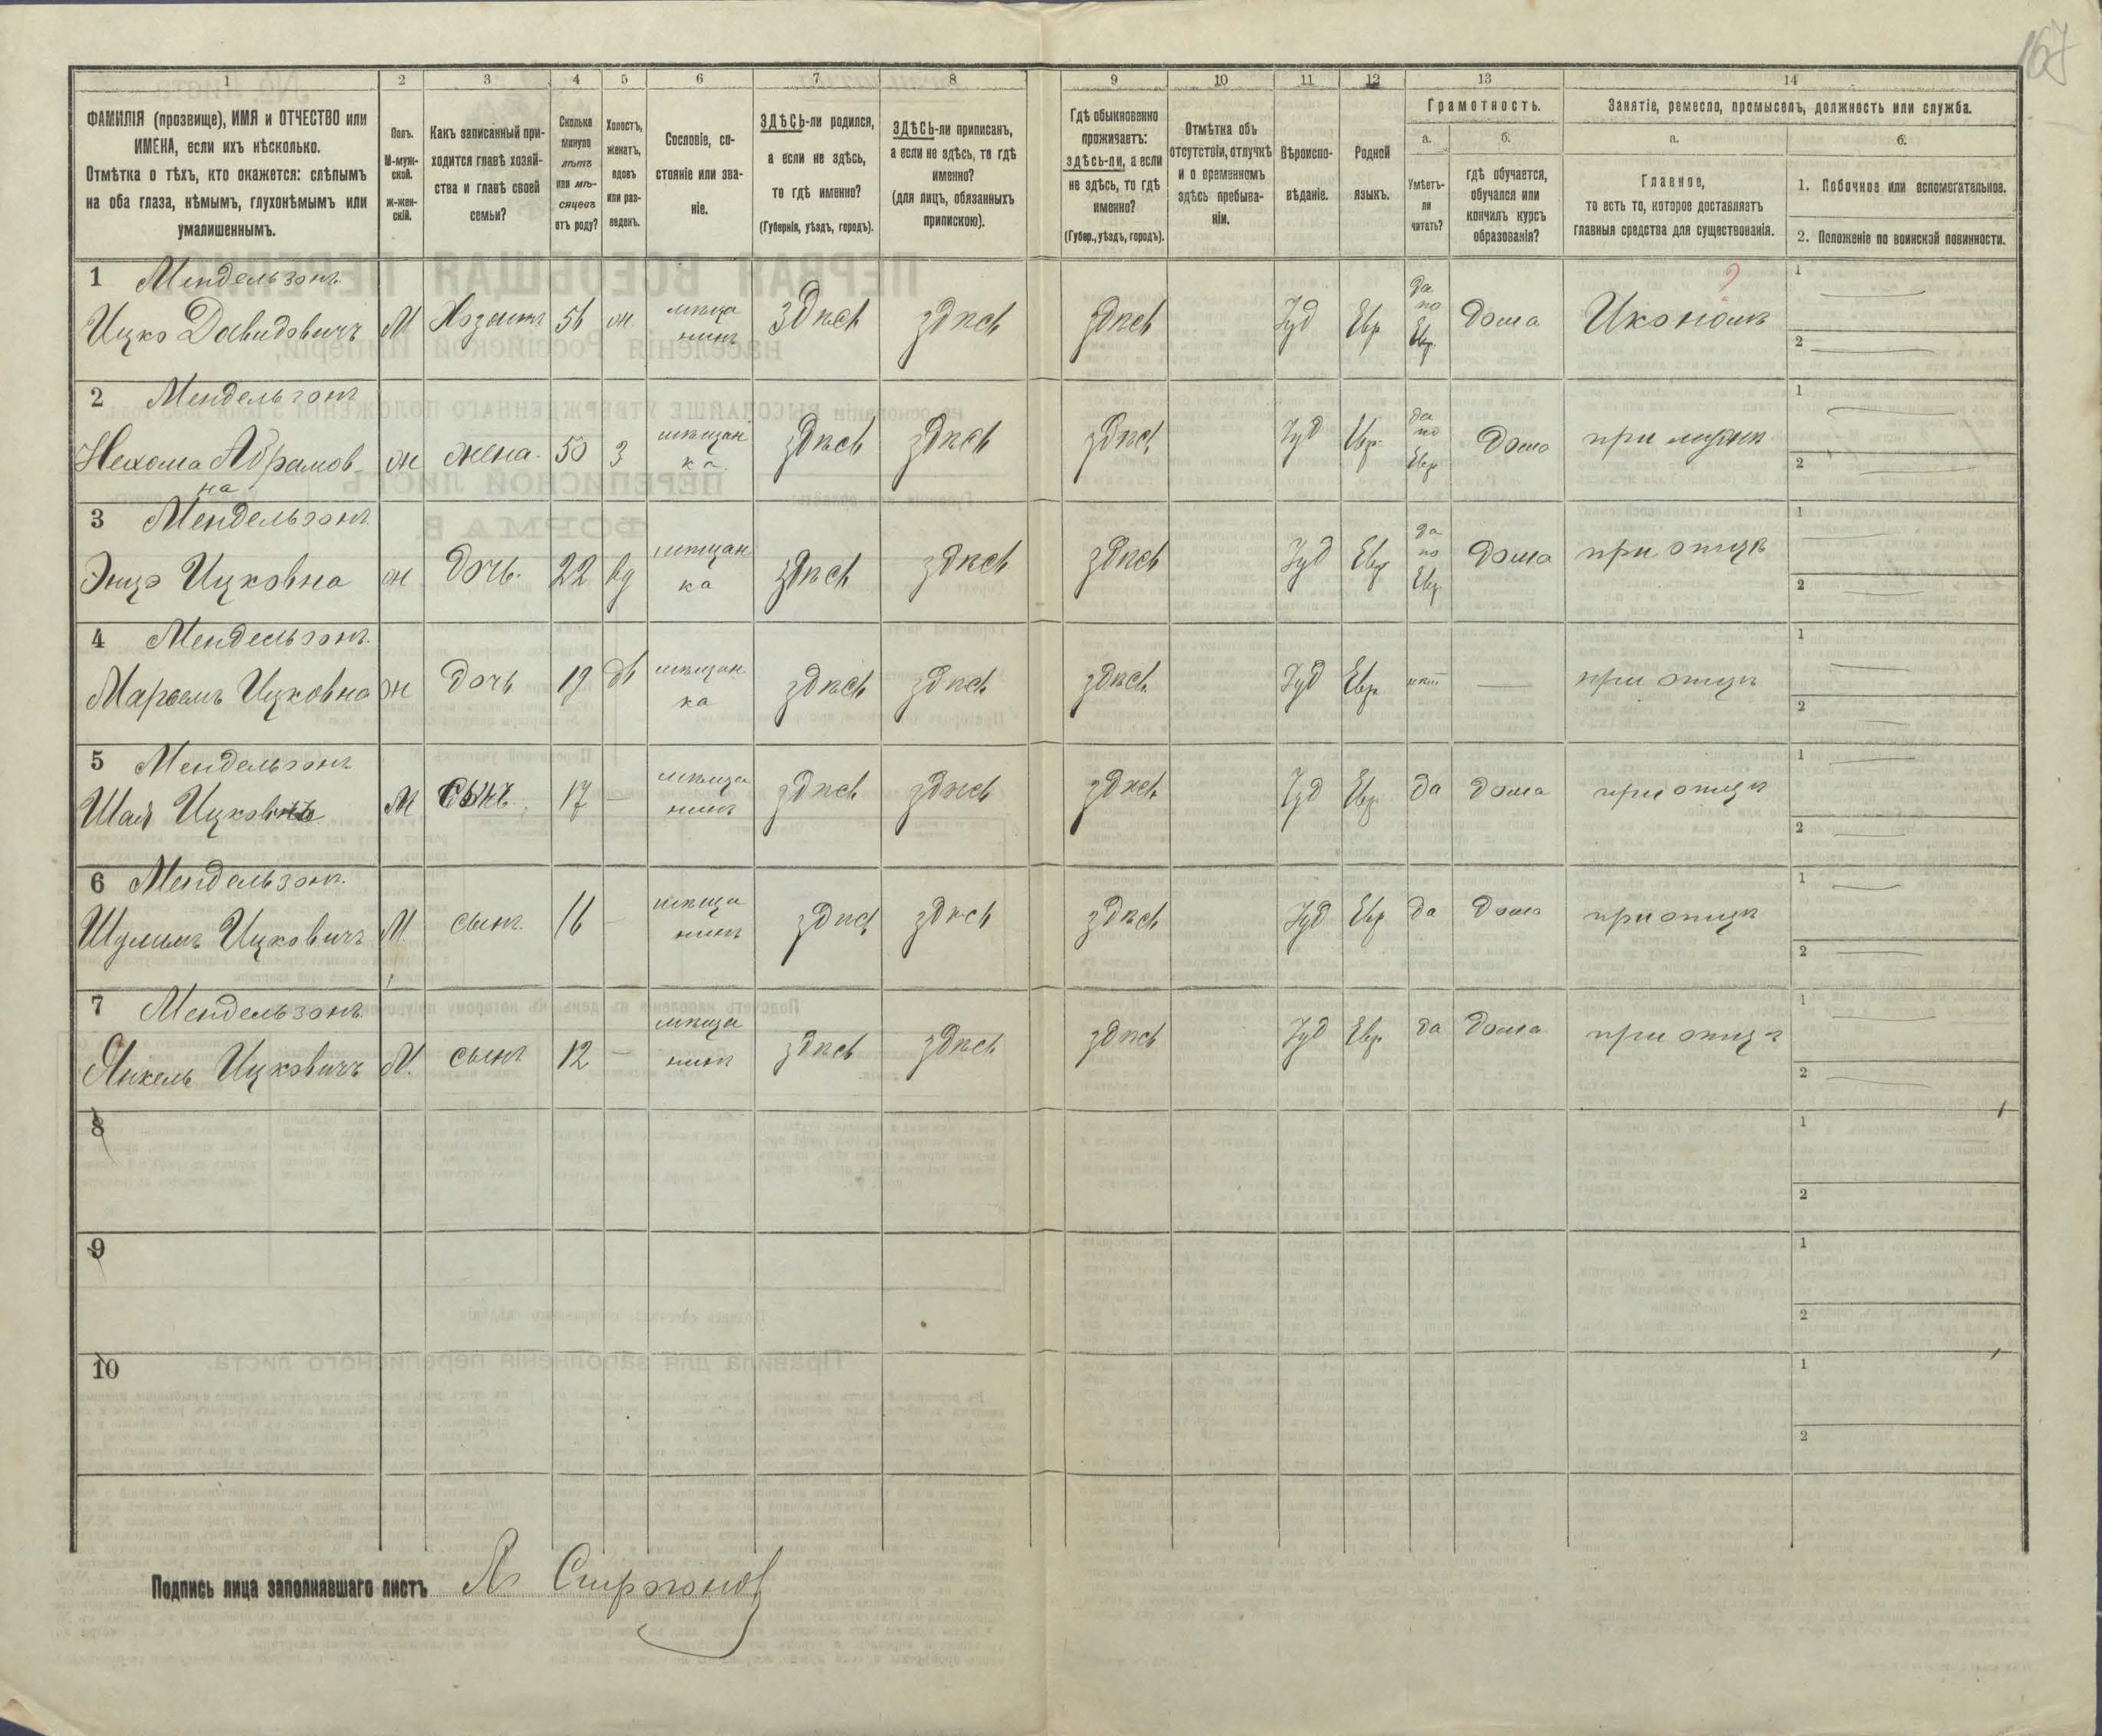 167
1 2 3 4 5 6 7 8 9 10 11 12 13 14
ФАМИЛІЯ (прозвище), ИМЯ и ОТЧЕСТВО или
ИМЕНА, если ихъ нѣсколько.
Отмѣтка о тѣхъ, кто окажется: слѣпымъ
на оба глаза, нѣмымъ, глухонѣмымъ или
умалишеннымъ.
Полъ.
М-муж-
ской.
ж-жен-
скій.
Какъ записанный при-
ходится главѣ хозяй-
ства и главѣ своей
семьи?
Сколько
минуло
лѣтъ
или мѣ-
сяцевъ
отъ роду?
Холостъ,
женатъ,
вдовъ
или раз-
веденъ.
Сословіе, со-
стояніе или зва-
ніе.
ЗДѢСЬ-ли родился,
а если не здѣсь,
то гдѣ именно?
(Губернія, уѣздъ, городъ).
ЗДѢСЬ-ли приписанъ,
а если не здѣсь, то гдѣ
именно?
(для лицъ, обязанныхъ
припискою).
Гдѣ обыкновенно
проживаетъ:
здѣсь-ли, а если
не здѣсь, то гдѣ
именно?
(Губер., уѣздъ, городъ).
Отмѣтка объ
отсутствіи, отлучкѣ
и о временномъ
здѣсь пребыва-
ніи.
Вѣроиспо-
вѣданіе.
Родной
языкъ.
Грамотность.
а.
Умѣетъ-
ли
читать?
б.
гдѣ обучается,
обучался или
кончилъ курсъ
образованія?
Занятіе, ремесло, промыселъ, должность или служба.
а.
Главное,
то есть то, которое доставляетъ
главныя средства для существованія.
б.
1. Побочное или вспомогательное.
2. Положеніе по воинской повинности.
1 Мендельзонъ
Ицко Давидовичъ М Хозяинъ 56 ж. мѣща
нинъ здѣсь здѣсь здѣсь Іуд Евр да
по
Евр. дома Икономъ ?
1
2
2 Мендельзонъ
Нехома Абрамов-
на ж жена 50 З мѣщан
ка здѣсь здѣсь здѣсь Іуд Евр. да
по
Евр дома при мужѣ
1
2
3 Мендельзонъ
Энцэ Ицковна ж дочь. 22 вд мѣщан
ка здѣсь здѣсь здѣсь Іуд Евр да
по
Евр дома при отцѣ
1
2
4 Мендельзонъ
Марьемъ Ицковна ж дочь 19 дѣ мѣщан
ка здѣсь здѣсь здѣсь Іуд Евр. нѣтъ — при отцѣ
1
2
5 Мендельзонъ
Шая М сынъ 17 — мѣща
нинъ здѣсь здѣсь здѣсь Іуд Евр. да дома при отцѣ
1
2
6 Мендельзонъ
Шулимъ Ицковичъ М. сынъ. 16 — мѣща
нинъ здѣсь здѣсь здѣсь Іуд Евр да дома при отцѣ
1
2
7 Мендельзонъ
Янкель Ицковичъ М. сынъ 12 — мѣща
нинъ здѣсь здѣсь здѣсь Іуд Евр. да дома при отцѣ
1
2
8
1
2
9
1
2
10
1
2
Подпись лица заполнявшаго листъ